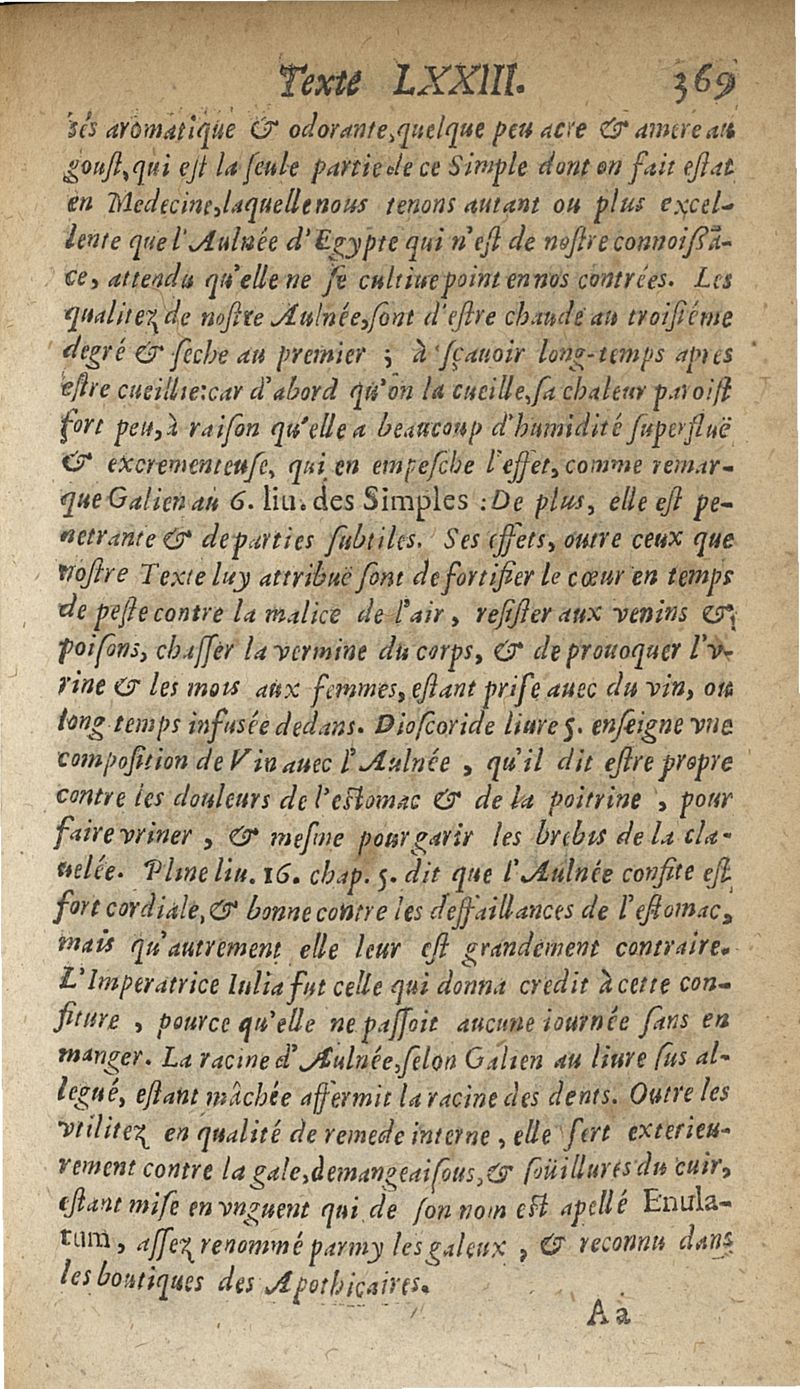 Texte LXXIII. 369
sés aromatique & odorante, quelque peu acre & amere au
goust, qui est la seule partie de ce Simple dont on fait estat
en Medecine, laquelle nous tenons autant ou plus excel-
lente que l'Aulnée d'Egypte qui n'est de nostre connoissã-
ce, attendu qu'elle ne se cultiue point en nos contrées. Les
qualitez de nostre Aulnée, sont d'estre chaude au troisiéme
degré & seche au premier ; à sçauoir long-temps apres
estre cueillie: car d'abord qu'on la cueille, sa chaleur paroist
fort peu, à raison qu'elle a beaucoup d'humidité superfluë
& excrementeuse, qui en empesche l'effet, comme remar-
que Galien au 6. liu. des Simples : De plus, elle est pe-
netrante & de parties subtiles. Ses effets, outre ceux que
nostre Texte luy attribuë sont de fortifier le cœur en temps
de peste contre la malice de l'air, resister aux venins &
poisons, chasser la vermine du corps, & de prouoquer l'v-
rine & les mois aux femmes, estant prise auec du vin, ou
long temps infusée dedans. Dioscoride liure 5. enseigne vne
composition de Vin auec l'Aulnée , qu'il dit estre propre
contre les douleurs de l'estomac & de la poitrine , pour
faire vriner , & mesme pour garir les brebis de la cla-
uelée. Pline liu. 16. chap. 5. dit que l'Aulnée confite est
fort cordiale, & bonne contre les deffaillances de l'estomac,
mais qu'autrement elle leur est grandement contraire.
L'Imperatrice Iulia fut celle qui donna credit à cette con-
fiture , pource qu'elle ne passoit aucune iournée sans en
manger. La racine d'Aulnée, selon Galien au liure sus al-
legué, estant mâchée affermit la racine des dents. Outre les
vtilitez en qualité de remede interne , elle sert exterieu-
rement contre la gale, demangeaisous, & soüillures du cuir,
estant mise en vnguent qui de son nom est apellé Enula-
tum, assez renommé parmy les galeux , & reconnu dans
les boutiques des Apothicaires.
Aa